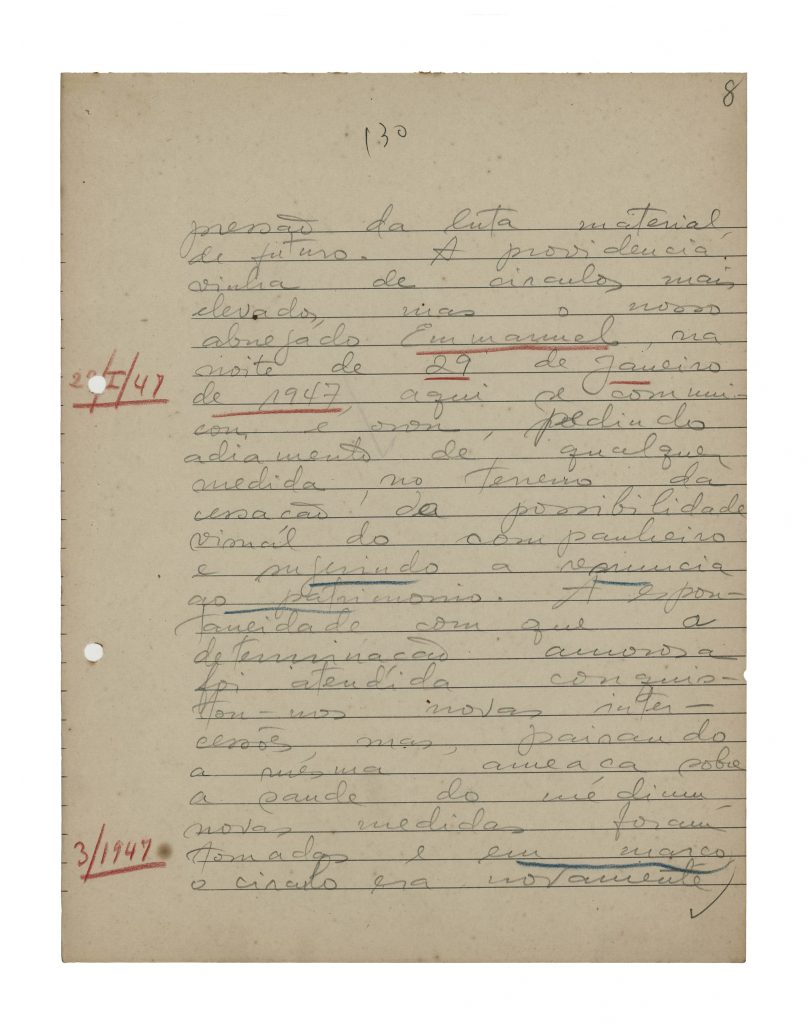 8
130
pressão da luta material,
de futuro. A providencia
vinha de circulos mais
elevados, mas o nosso
abnegado Emmanuel, na
noite de 29 de Janeiro
29/I/47
de 1947, aqui se communi-
cou, e orou, pedindo
adiamento de qualquer
medida, no terreno da
cessação da possibilidade
visuál do companheiro
e sugerindo a renuncia
ao patrimonio. A espon-
taneidade com que a
determinação amorosa
foi atendida conquis-
tou-nos novas inter-
cessões, mas, pairando
a mésma ameaça sobre
a saude do médium
novas medidas foram
3/1947
tomadas e em março
o circulo era novamente